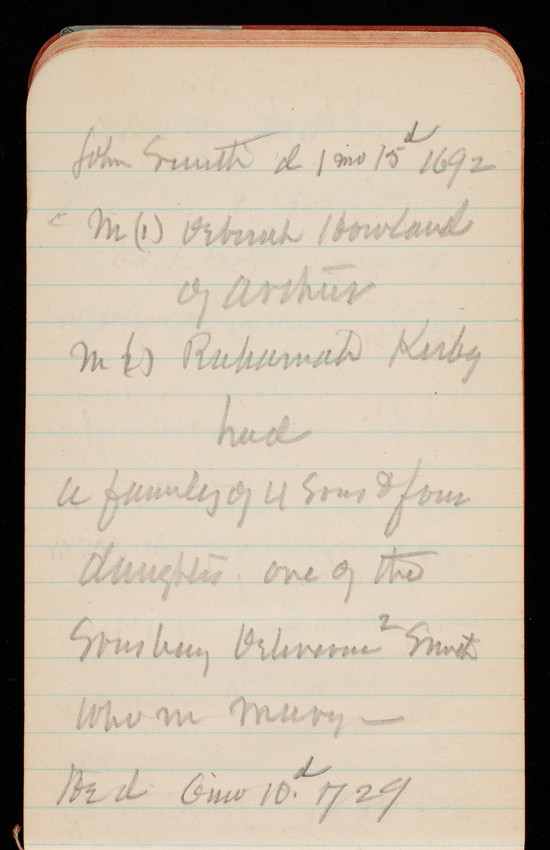 John Smith d 1 mo 15d 1692
M (1) Deborah Howland
of Arthur
M (2) Ruhamah Kirby
had
a family of 4 Sons & four
daughters. one of the
Sons being Deliverance2 Smith
who m Mary —
He d. 6 mo 10.d 1729